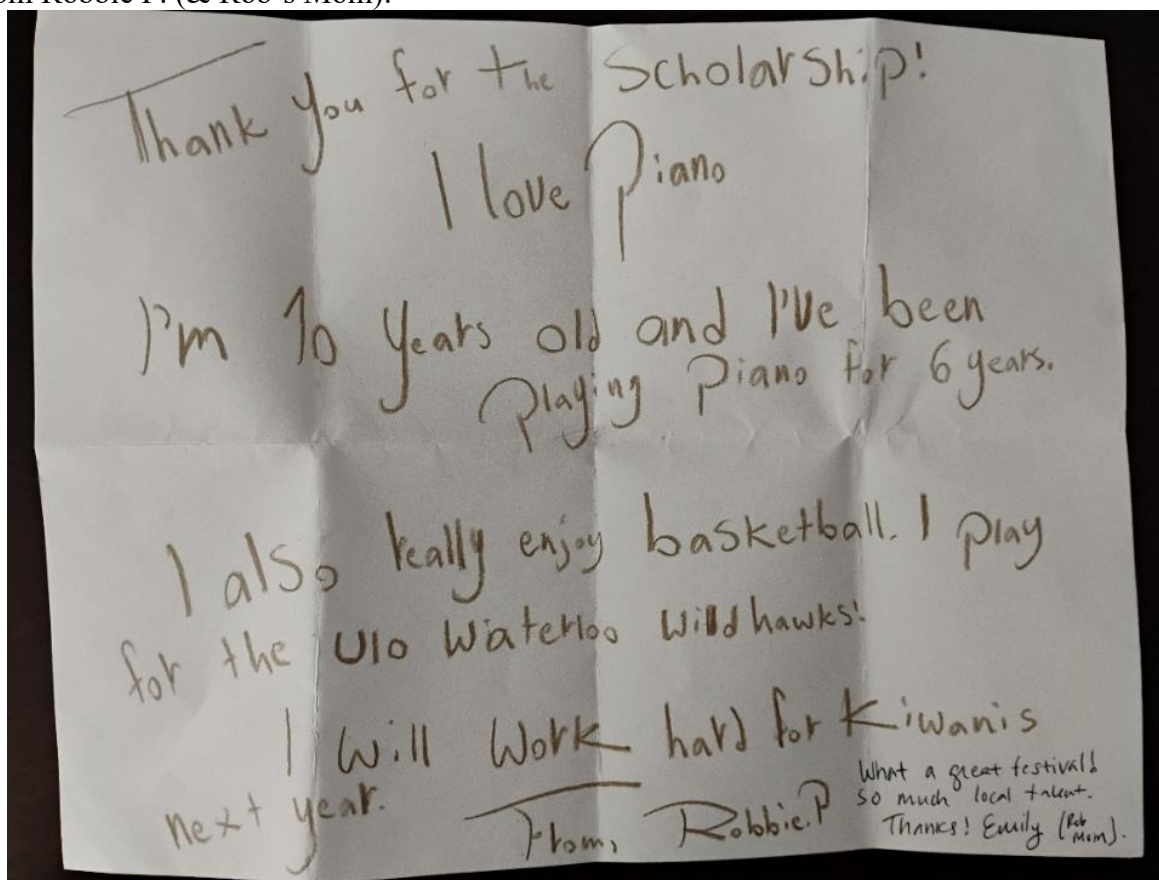 om Robbie P. (& Rob's Mom):
Thank you for the Scholarship!
I love Piano
I'm 10 years old and I've been
Playing Piano for 6 years.
I also really enjoy basketball. I play
for the U10 Waterloo Wildhawks!
I will work hard for Kiwanis
next year.
From, Robbie.P
What a great festival!
so much local talent.
Thanks! Emily (Rob Mom).